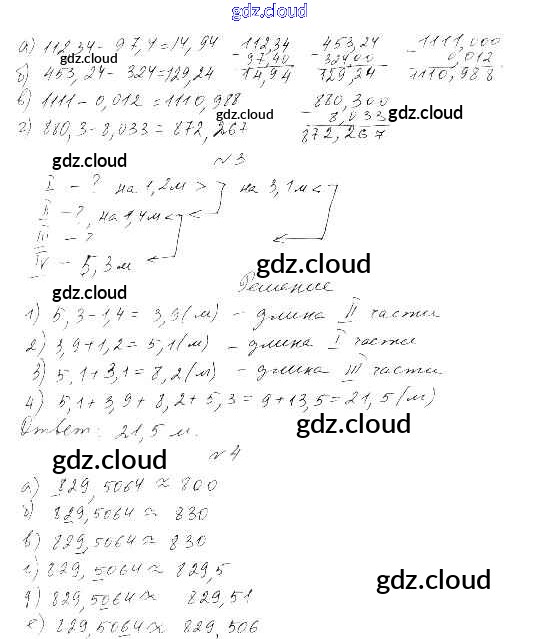 gdz.cloud
а) 112,34 - 97,4 = 14,94
б) 453,24 - 324 = 129,24
в) 1111 - 0,012 = 1110,988
г) 880,3 - 8,033 = 872,267
112,34
- 97,40
14,94
453,24
- 324,00
129,24
1111,000
- 0,012
1110,988
880,300
- 8,033
872,267
gdz.cloud
gdz.cloud
gdz.cloud
gdz.cloud
№3
I - ? на 1,2м > на 3,1м <
II - ?, на 1,4м <
III - ?
IV - 5,3м
gdz.cloud
gdz.cloud
Решение
1) 5,3 - 1,4 = 3,9(м) - длина II части
2) 3,9 + 1,2 = 5,1(м) - длина I части
3) 5,1 + 3,1 = 8,2(м) - длина III части
4) 5,1 + 3,9 + 8,2 + 5,3 = 9 + 13,5 = 21,5(м)
Ответ: 21,5 м.
gdz.cloud
gdz.cloud
№4
а) 829,5064 ≈ 800
б) 829,5064 ≈ 830
в) 829,5064 ≈ 830
г) 829,5064 ≈ 829,5
д) 829,5064 ≈ 829,51
е) 829,5064 ≈ 829,506
gdz.cloud
gdz.cloud